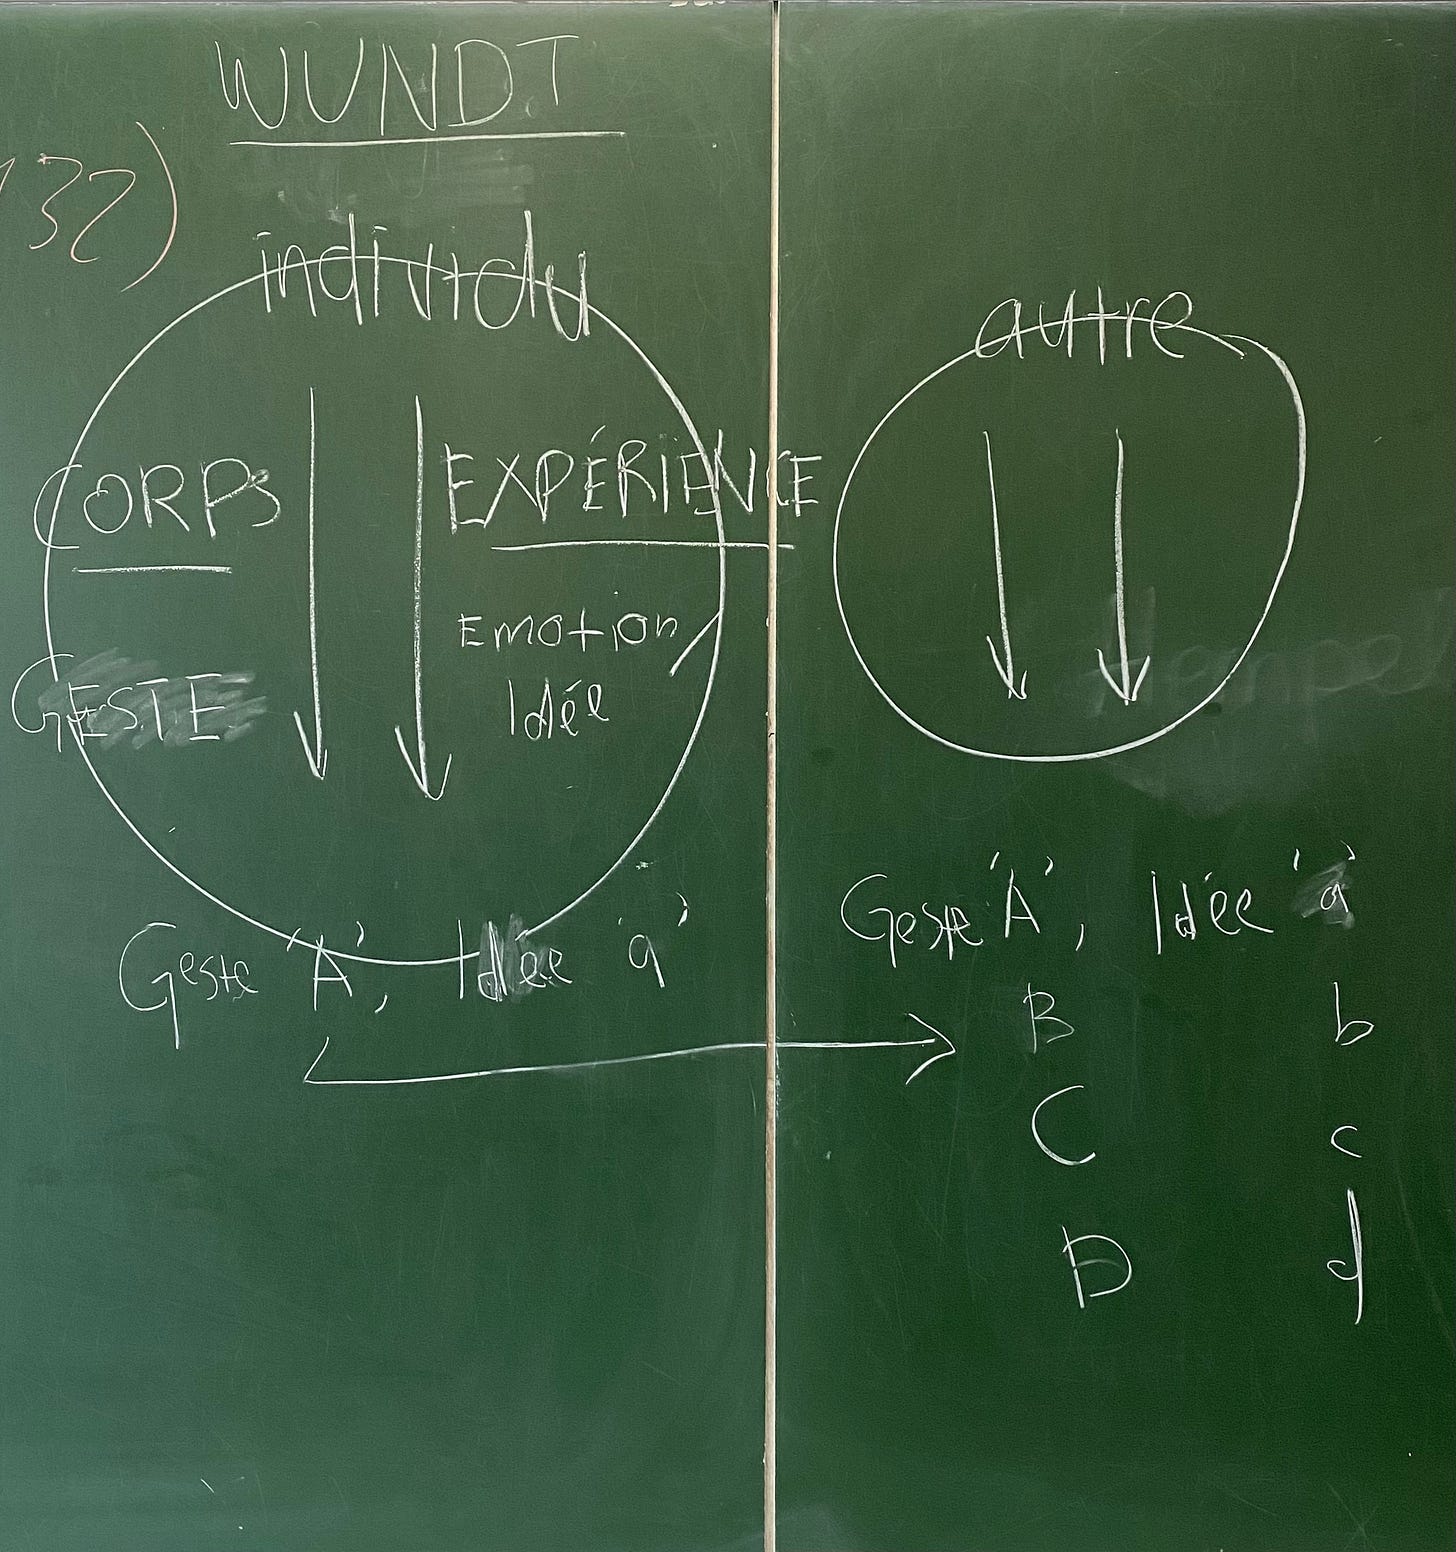 WUNDT
132)
individu
autre
CORPS EXPÉRIENCE
Emotion
GESTE Idée
Geste 'A', Idée 'a'
Geste 'A', Idée 'a'
B b
C c
D d